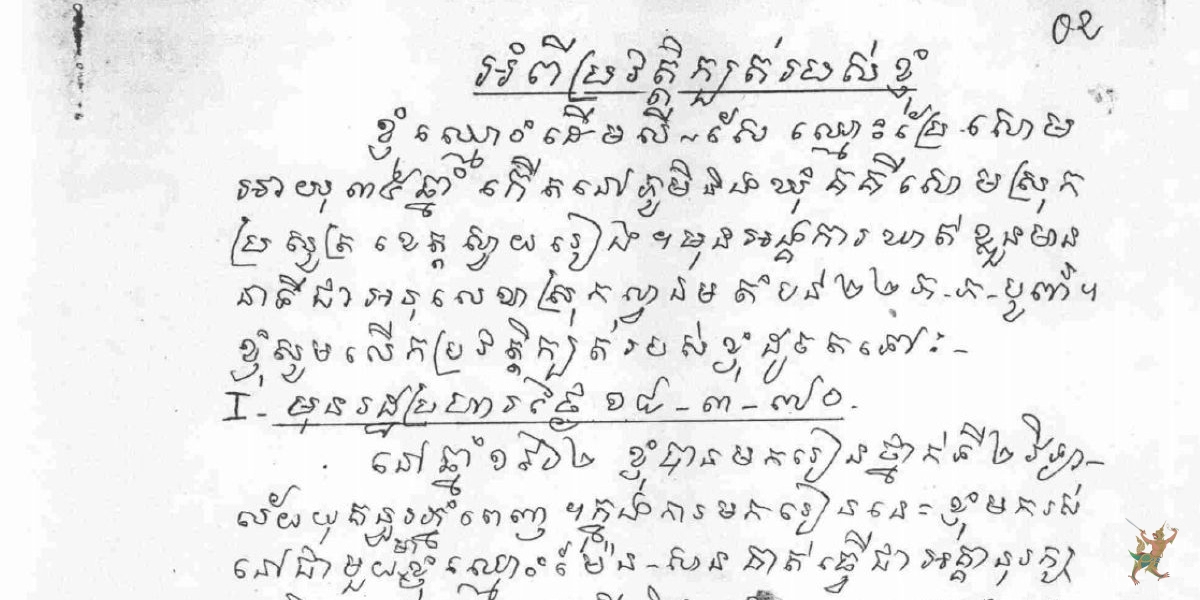 02
អំពីប្រវត្តិក្បត់របស់ខ្ញុំ
ខ្ញុំឈ្មោះដើមលី-សែ ឈ្មោះប្រែ សោម
អាយុ៣៥ឆ្នាំ កើតនៅភូមិ ឃុំគគីសោមស្រុក
ប្រសូត្រ ខេត្តស្វាយរៀង។ មុនអង្គការឃាត់ខ្លួនមាន
នាទីជាអនុលេខាស្រុកល្វាឯម តំបន់២២ ភ-ភ-បូញា៌។
ខ្ញុំសូមលើកប្រវត្តិក្បត់របស់ខ្ញុំដូចតទៅ:-
I- មុនរដ្ឋប្រហារថ្ងៃ ១៨-៣-៧០.
នៅឆ្នាំ១៩៦២ ខ្ញុំបានមករៀនថ្នាក់ទី២វិទ្យា-
ល័យយុគន្ធរភ្នំពេញ ។ក្នុងការមករៀននេះ ខ្ញុំមករស់
នៅជាមួយមាខ្ញុំឈ្មោះម៉ែន-សាន គាត់ធ្វើជា